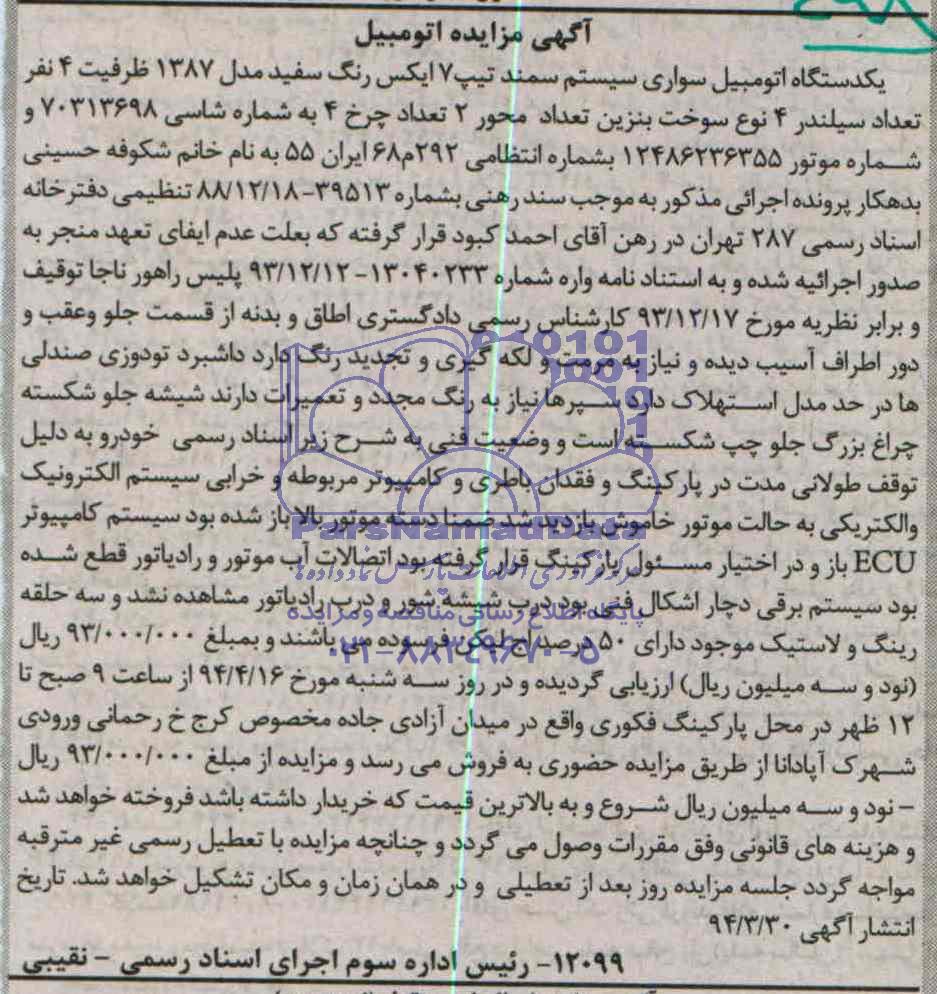 آگهی مزایده اتومبیل
یکدستگاه اتومبیل سواری سیستم سمند تیپ۷ ایکس رنگ سفید مدل ۱۳۸۷ ظرفیت ۴ نفر
تعداد سیلندر ۴ نوع سوخت بنزین تعداد محور ۲ تعداد چرخ ۴ به شماره شاسی ۷۰۳۱۳۶۹۸ و
شماره موتور ۱۲۴۸۶۲۳۶۳۵۵ بشماره انتظامی ۲۹۲م۶۸ ایران ۵۵ به نام خانم شکوفه حسینی
بدهکار پرونده اجرائی مذکور به موجب سند رهنی بشماره ۳۹۵۱۳-۸۸/۱۲/۱۸ تنظیمی دفترخانه
اسناد رسمی ۲۸۷ تهران در رهن آقای احمد کبود قرار گرفته که بعلت عدم ایفای تعهد منجر به
صدور اجرائیه شده و به استناد نامه واره شماره ۱۳۰۴۰۲۳۳-۹۳/۱۲/۱۲ پلیس راهور ناجا توقیف
و برابر نظریه مورخ ۹۳/۱۲/۱۷ کارشناس رسمی دادگستری اطاق و بدنه از قسمت جلو وعقب و
دور اطراف آسیب دیده و نیاز به مرمت و لکه گیری و تجدید رنگ دارد داشبرد تودوزی صندلی
ها در حد مدل استهلاک دارد سپرها نیاز به رنگ مجدد و تعمیرات دارند شیشه جلو شکسته
چراغ بزرگ جلو چپ شکسته است و وضعیت فنی به شرح زیر اسناد رسمی خودرو به دلیل
توقف طولانی مدت در پارکینگ و فقدان باطری و کامپیوتر مربوطه و خرابی سیستم الکترونیک
والکتریکی به حالت موتور خاموش بازدید شد ضمنا دسته موتور بالا باز شده بود سیستم کامپیوتر
ECU باز و در اختیار مسئول پارکینگ قرار گرفته بود اتصالات آب موتور و رادیاتور قطع شده
بود سیستم برقی دچار اشکال فنی بود درب شیشه شور و درب رادیاتور مشاهده نشد و سه حلقه
رینگ و لاستیک موجود دارای ۵۰ درصد اج لیکن فرسوده می باشند و بمبلغ ۹۳/۰۰۰/۰۰۰ ریال
(نود و سه میلیون ریال) ارزیابی گردیده و در روز سه شنبه مورخ ۹۴/۴/۱۶ از ساعت ۹ صبح تا
۱۲ ظهر در محل پارکینگ فکوری واقع در میدان آزادی جاده مخصوص کرج خ رحمانی ورودی
شهرک آپادانا از طریق مزایده حضوری به فروش می رسد و مزایده از مبلغ ۹۳/۰۰۰/۰۰۰ ریال
- نود و سه میلیون ریال شروع و به بالاترین قیمت که خریدار داشته باشد فروخته خواهد شد
و هزینه های قانونی وفق مقررات وصول می گردد و چنانچه مزایده با تعطیل رسمی غیر مترقبه
مواجه گردد جلسه مزایده روز بعد از تعطیلی و در همان زمان و مکان تشکیل خواهد شد. تاریخ
انتشار آگهی ۹۴/۳/۳۰
۱۲۰۹۹- رئیس اداره سوم اجرای اسناد رسمی - نقیبی
ParsNamadData
پایگاه اطلاع رسانی مناقصه و مزایده